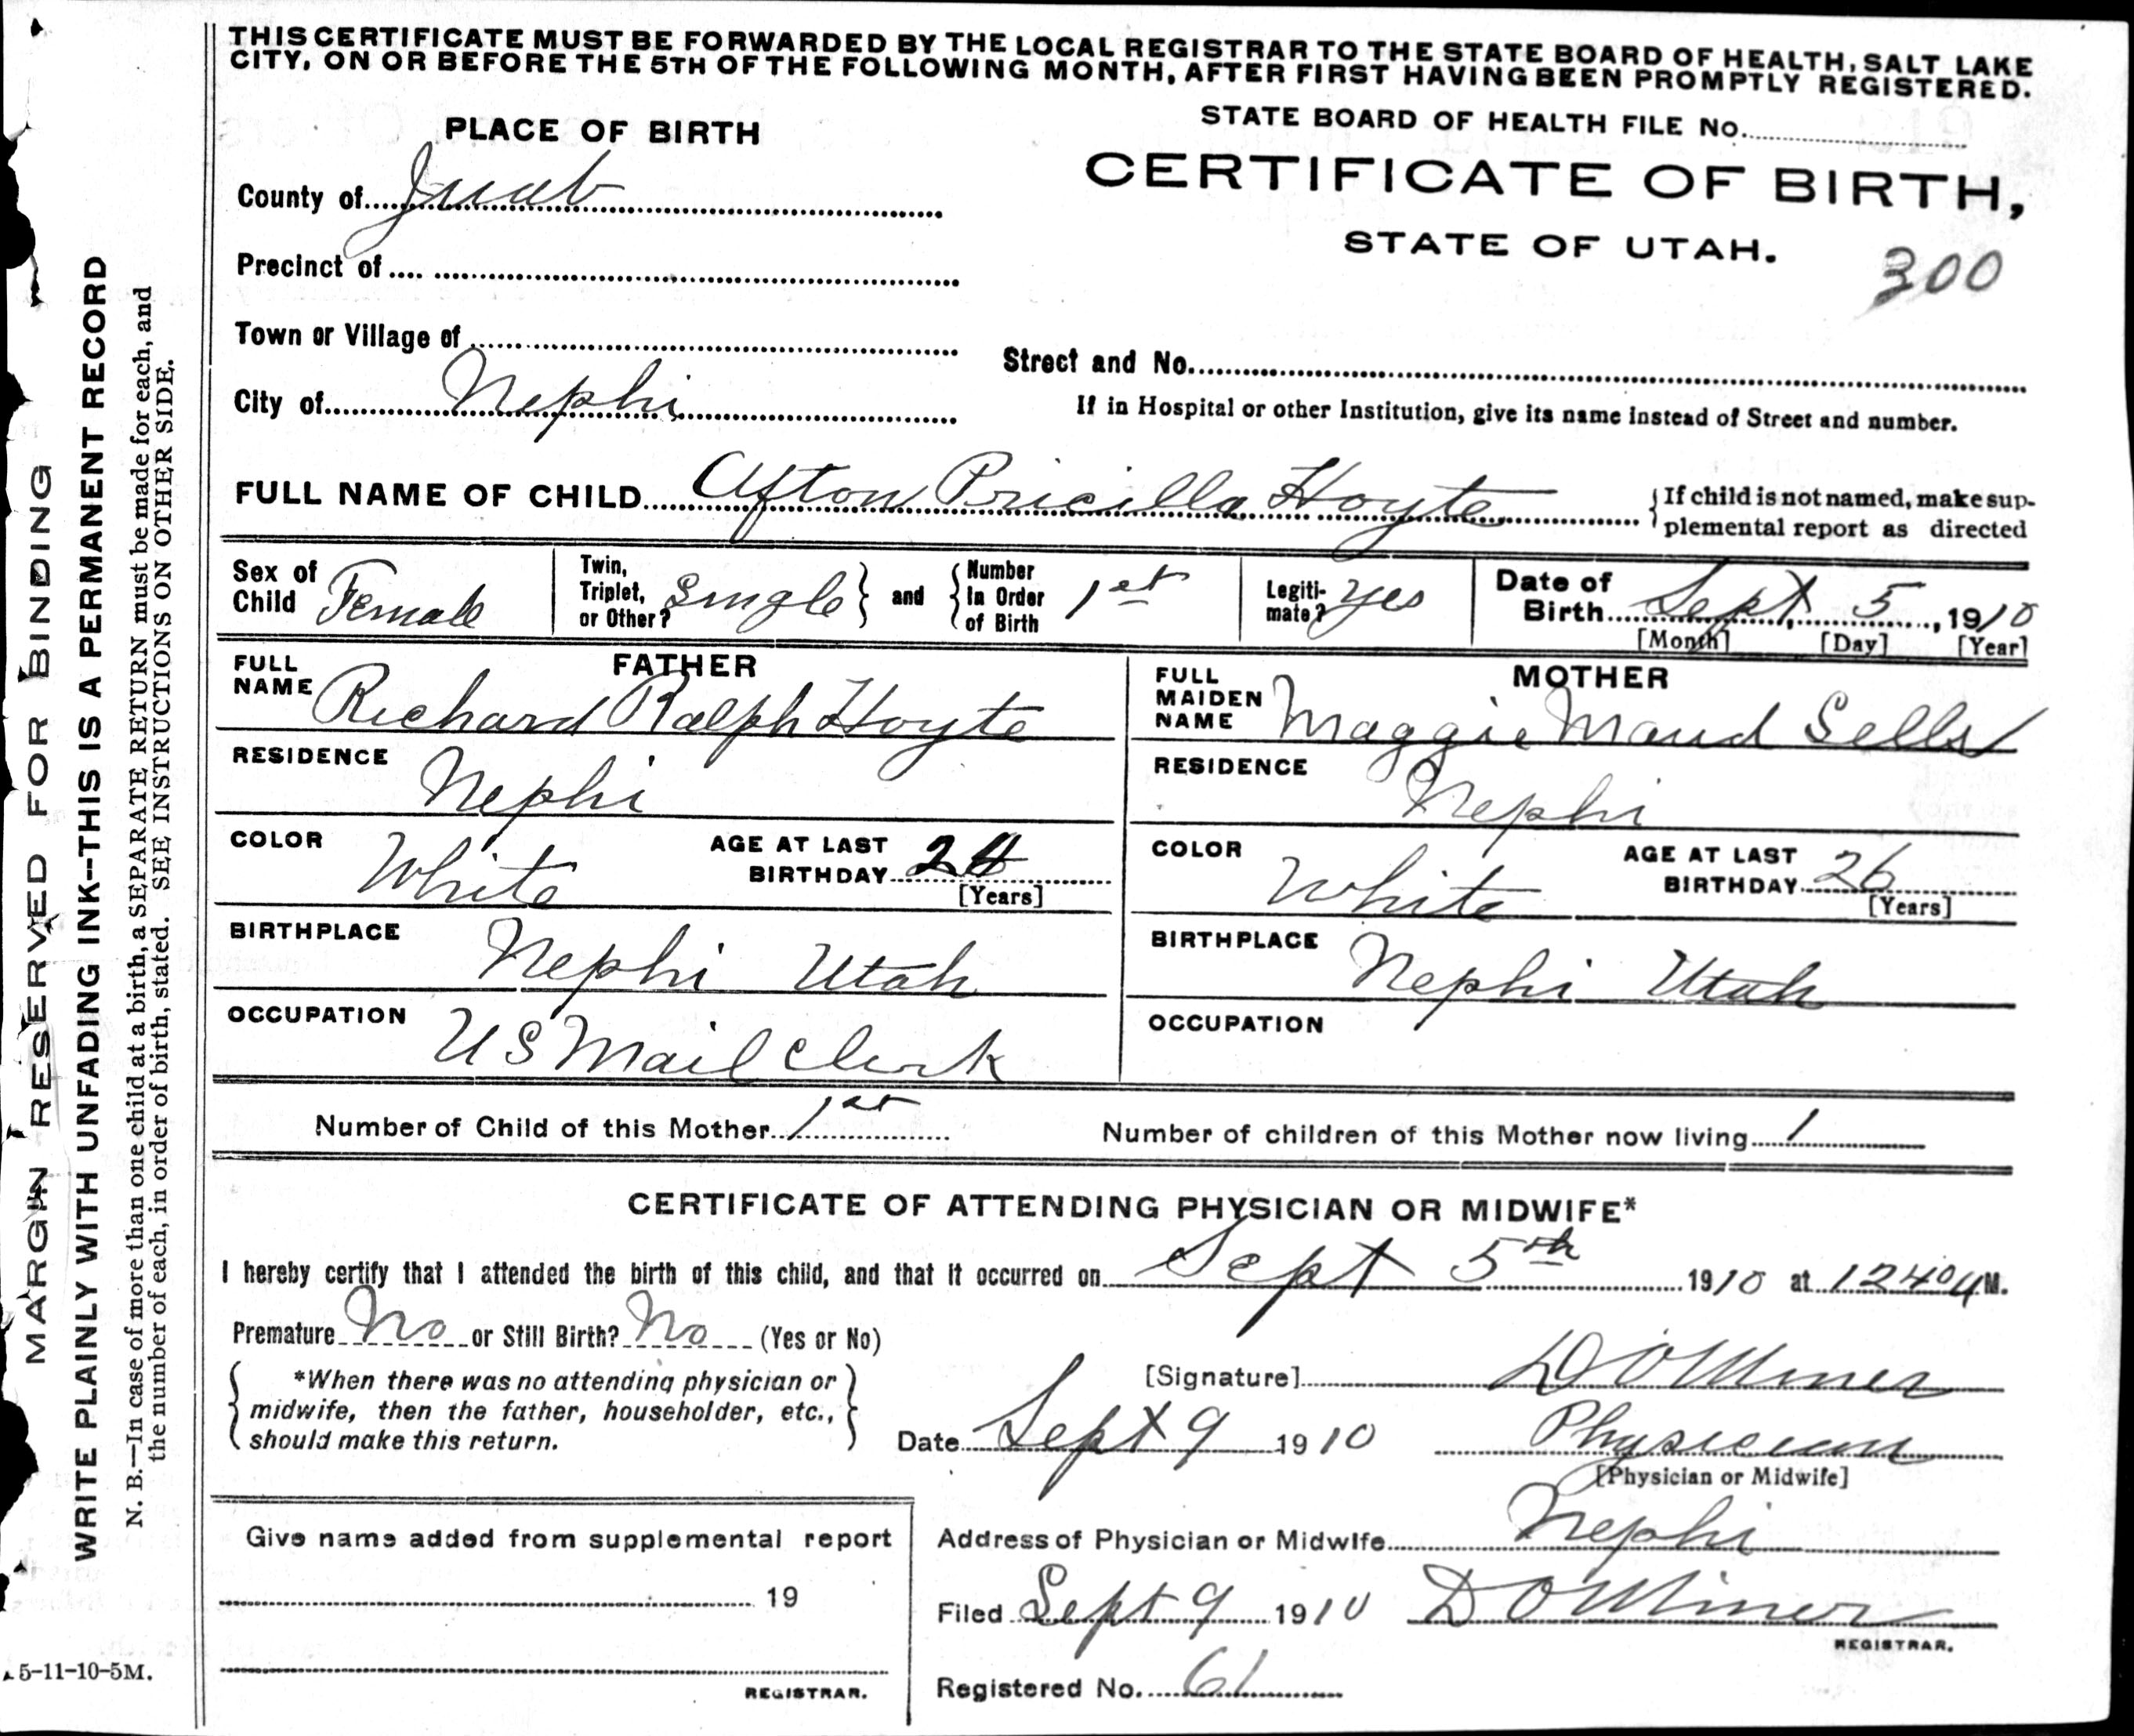 THIS CERTIFICATE MUST BE FORWARDED BY THE LOCAL REGISTRAR TO THE STATE BOARD OF HEALTH, SALT LAKE
CITY, ON OR BEFORE THE 5TH OF THE FOLLOWING MONTH, AFTER FIRST HAVING BEEN PROMPTLY REGISTERED.
PLACE OF BIRTH
STATE BOARD OF HEALTH FILE No.
County of Juab
CERTIFICATE OF BIRTH,
STATE OF UTAH.
300
Precinct of
Town or Village of
Street and No.
City of Nephi
If in Hospital or other Institution, give its name instead of Street and number.
FULL NAME OF CHILD Afton Pricilla Hoyte
{ If child is not named, make sup-
plemental report as directed
Sex of
Child Female
Twin,
Triplet,
or Other? Single } and { Number
In Order
of Birth 1st
Legiti-
mate? Yes
Date of
Birth Sept 5, 1910
[Month] [Day] [Year]
FATHER
FULL
NAME Richard Ralph Hoyte
MOTHER
FULL
MAIDEN
NAME Maggie Maud Sells
RESIDENCE Nephi
RESIDENCE Nephi
COLOR White
AGE AT LAST
BIRTHDAY 24
[Years]
COLOR White
AGE AT LAST
BIRTHDAY 26
[Years]
BIRTHPLACE Nephi Utah
BIRTHPLACE Nephi Utah
OCCUPATION U S Mail Clerk
OCCUPATION
Number of Child of this Mother 1st
Number of children of this Mother now living 1
CERTIFICATE OF ATTENDING PHYSICIAN OR MIDWIFE*
I hereby certify that I attended the birth of this child, and that it occurred on Sept 5th 1910 at 1240 M.
Premature No or Still Birth? No (Yes or No)
{ *When there was no attending physician or
midwife, then the father, householder, etc.,
should make this return. }
[Signature] D O Miner
Date Sept 9 1910 Physician
[Physician or Midwife]
Give name added from supplemental report
19
REGISTRAR.
Address of Physician or Midwife Nephi
Filed Sept 9 1910 D O Miner
REGISTRAR.
Registered No. 61
MARGIN RESERVED FOR BINDING
WRITE PLAINLY WITH UNFADING INK--THIS IS A PERMANENT RECORD
N. B.—In case of more than one child at a birth, a SEPARATE RETURN must be made for each, and
the number of each, in order of birth, stated. SEE INSTRUCTIONS ON OTHER SIDE.
5-11-10-5M.